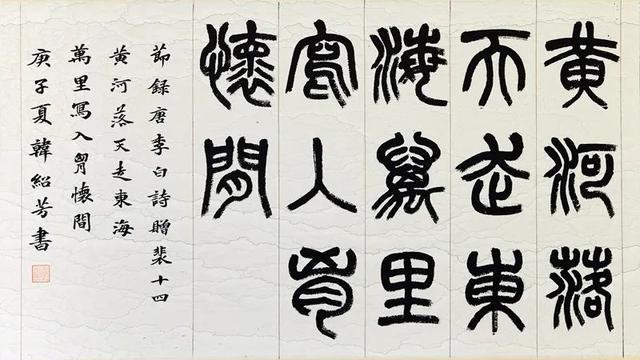 黄河落
天走東
海萬里
寫入胷
懷間
節録唐李白詩贈裴十四
黄河落天走東海
萬里寫入胷懷間
庚子夏韓紹芳書